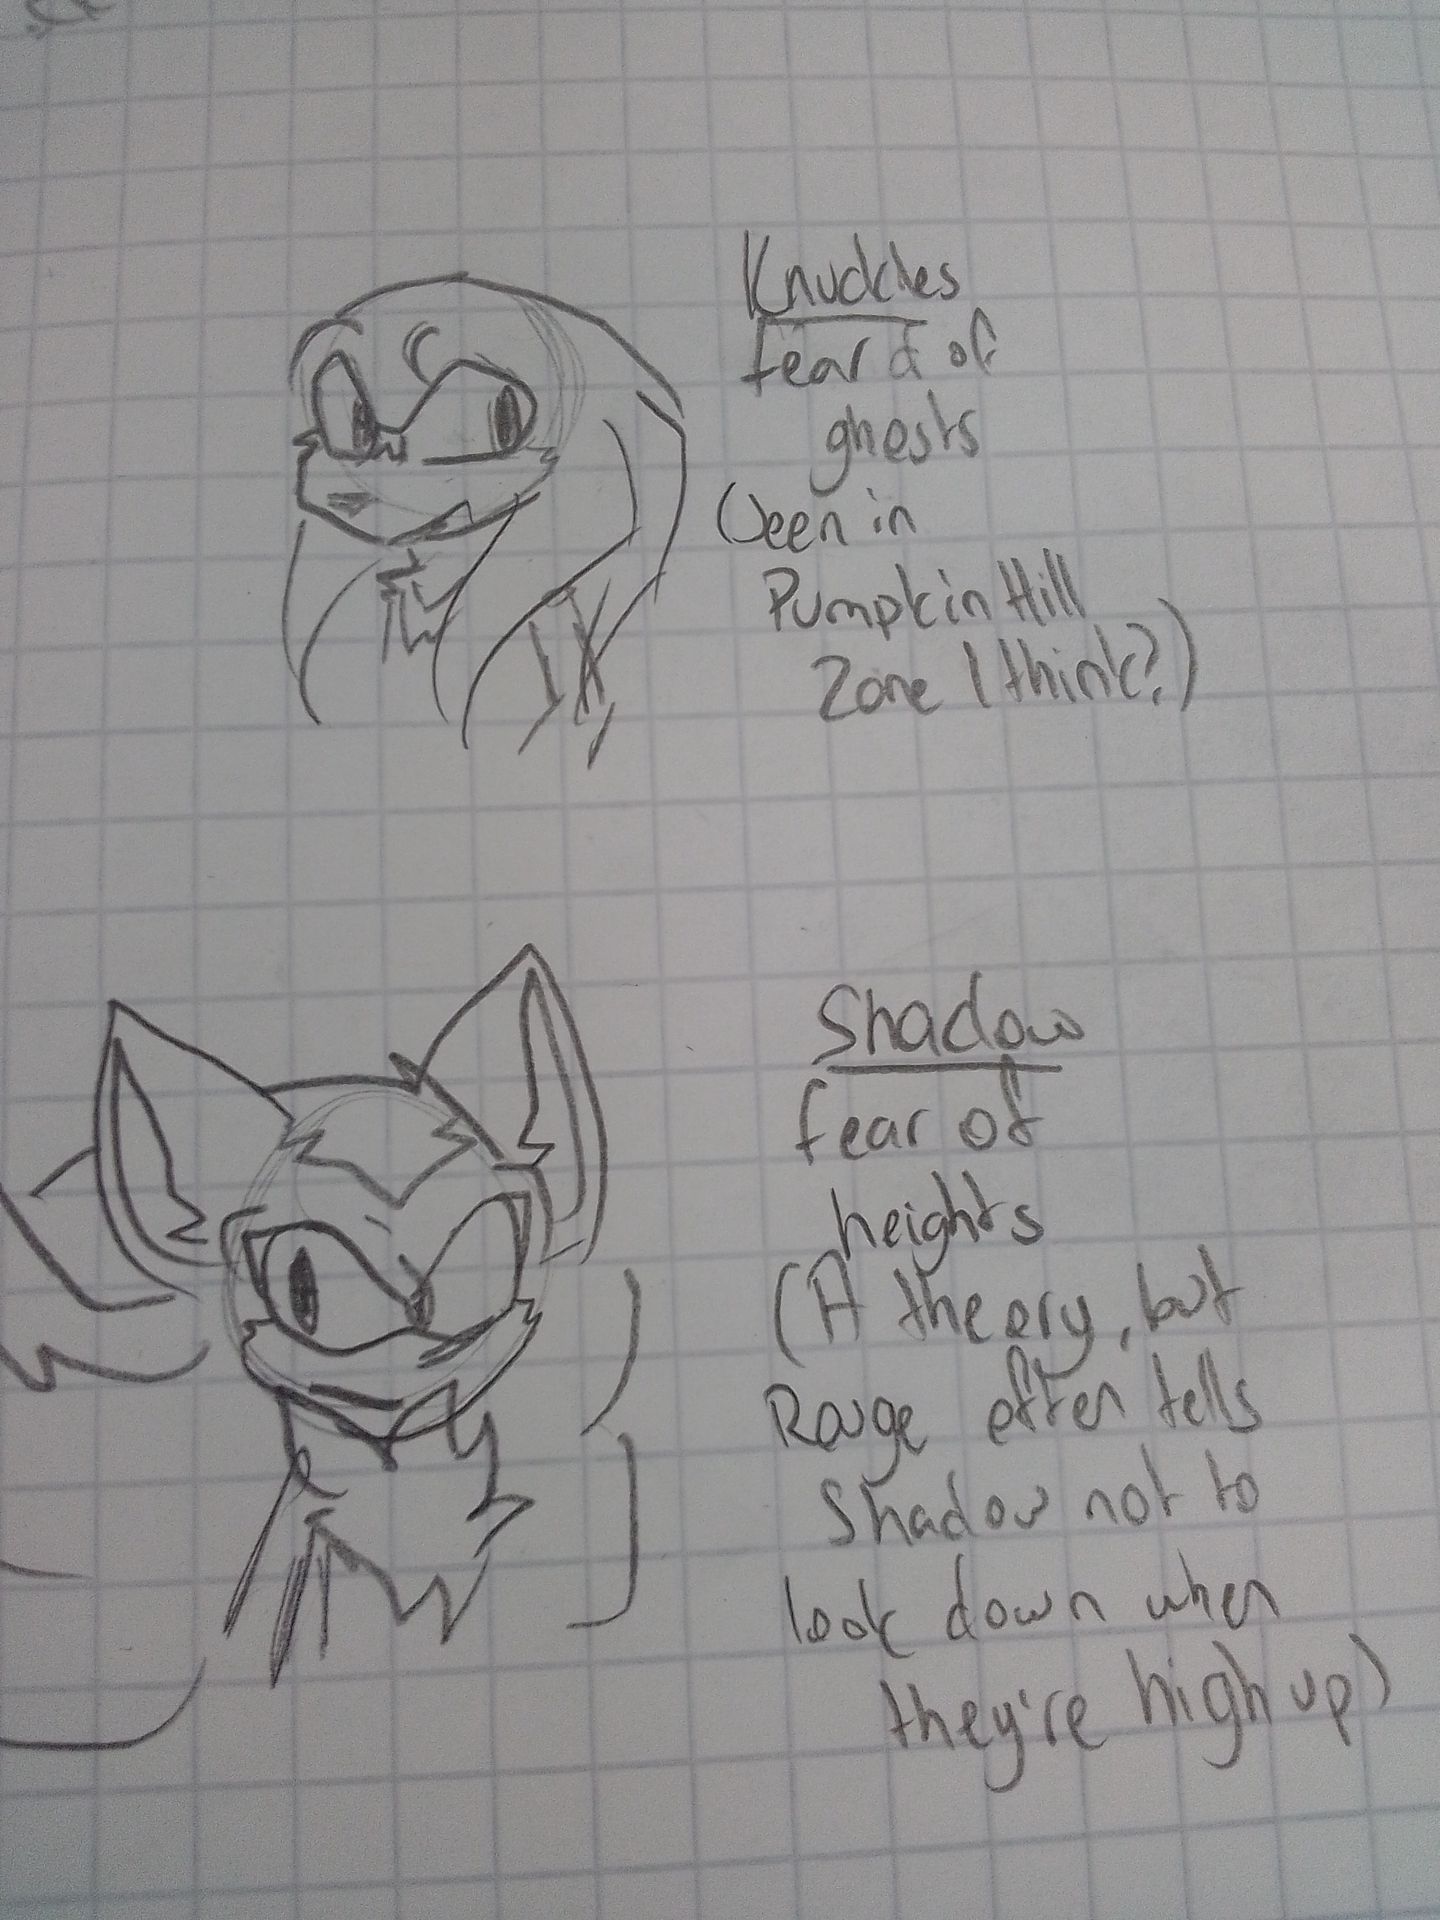 Knuckles
fear & of
ghosts
(Seen in
Pumpkin Hill
Zone I think?)
Shadow
fear of
heights
(A theory, but
Rouge often tells
Shadow not to
look down when
they're high up)